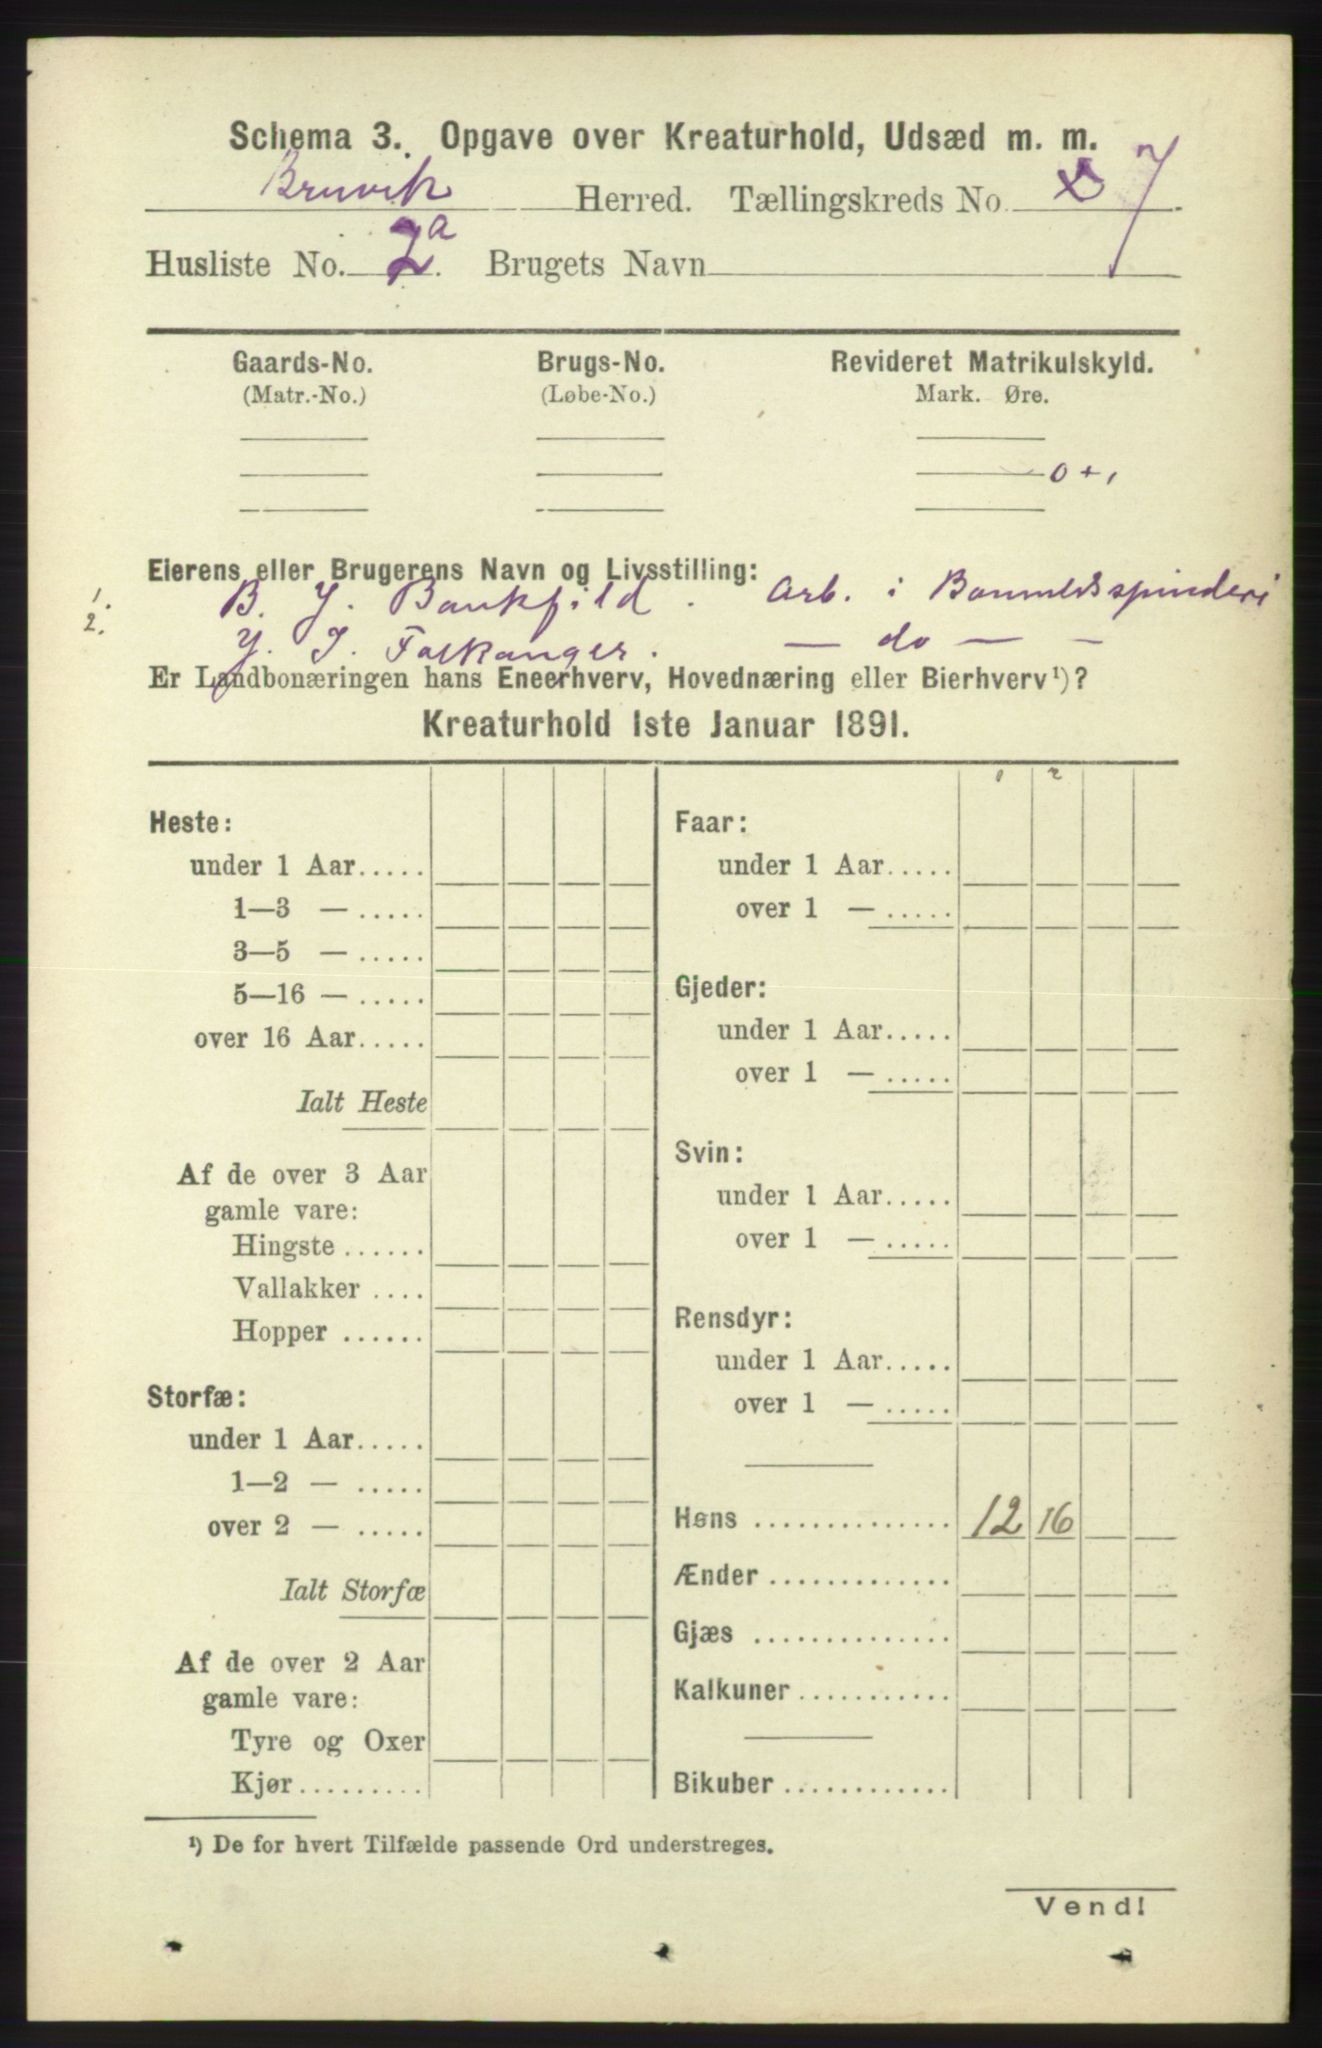 Schema 3. Opgave over Kreaturhold, Udsæd m. m.
Bruvik Herred. Tællingskreds No. 7
Husliste No. 2a. Brugets Navn
Gaards-No. Brugs-No. Revideret Matrikulskyld.
(Matr.-No.) (Løbe-No.) Mark. Øre.
0 + 1
Eierens eller Brugerens Navn og Livsstilling:
1. B. J. Bankfild. Arb. i Bomuldsspinderi
2. J. J. Falkanger. — do —
Er Landbonæringen hans Eneerhverv, Hovednæring eller Bierhverv¹)?
Kreaturhold 1ste Januar 1891.
1 2
Heste:
under 1 Aar.....
1—3 — .....
3—5 — .....
5—16 — .....
over 16 Aar.....
Ialt Heste
Af de over 3 Aar
gamle vare:
Hingste ......
Vallakker ....
Hopper ......
Storfæ:
under 1 Aar.....
1—2 — .....
over 2 — .....
Ialt Storfæ
Af de over 2 Aar
gamle vare:
Tyre og Oxer
Kjør.........
Faar:
under 1 Aar.....
over 1 — .....
Gjeder:
under 1 Aar.....
over 1 — .....
Svin:
under 1 Aar.....
over 1 — .....
Rensdyr:
under 1 Aar.....
over 1 — .....
Høns .............. 12 16
Ænder .............
Gjæs ..............
Kalkuner ...........
Bikuber ............
¹) De for hvert Tilfælde passende Ord understreges.
Vend!